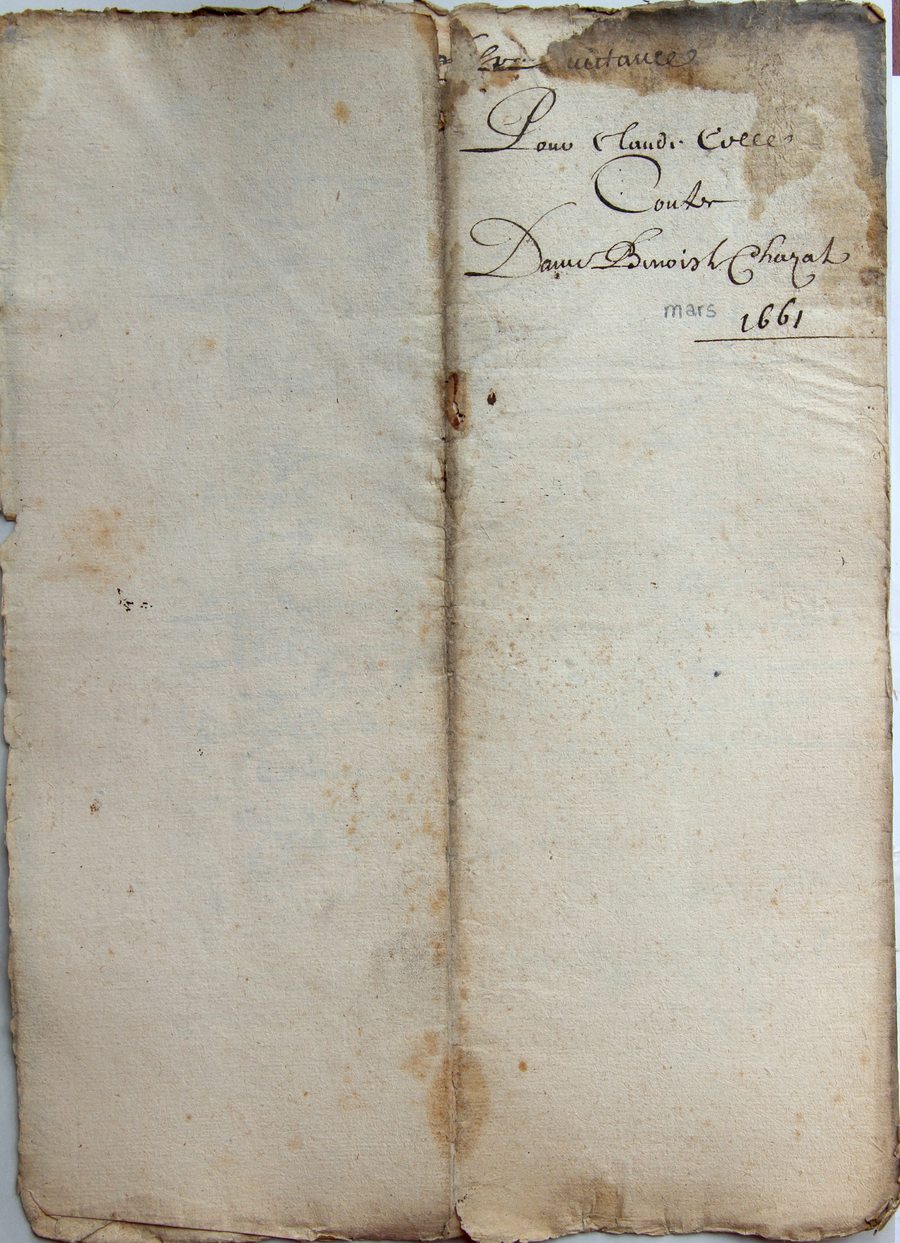 uictance
Pour Claude Colle
Contre
Dame Benoist Chazal
mars 1661